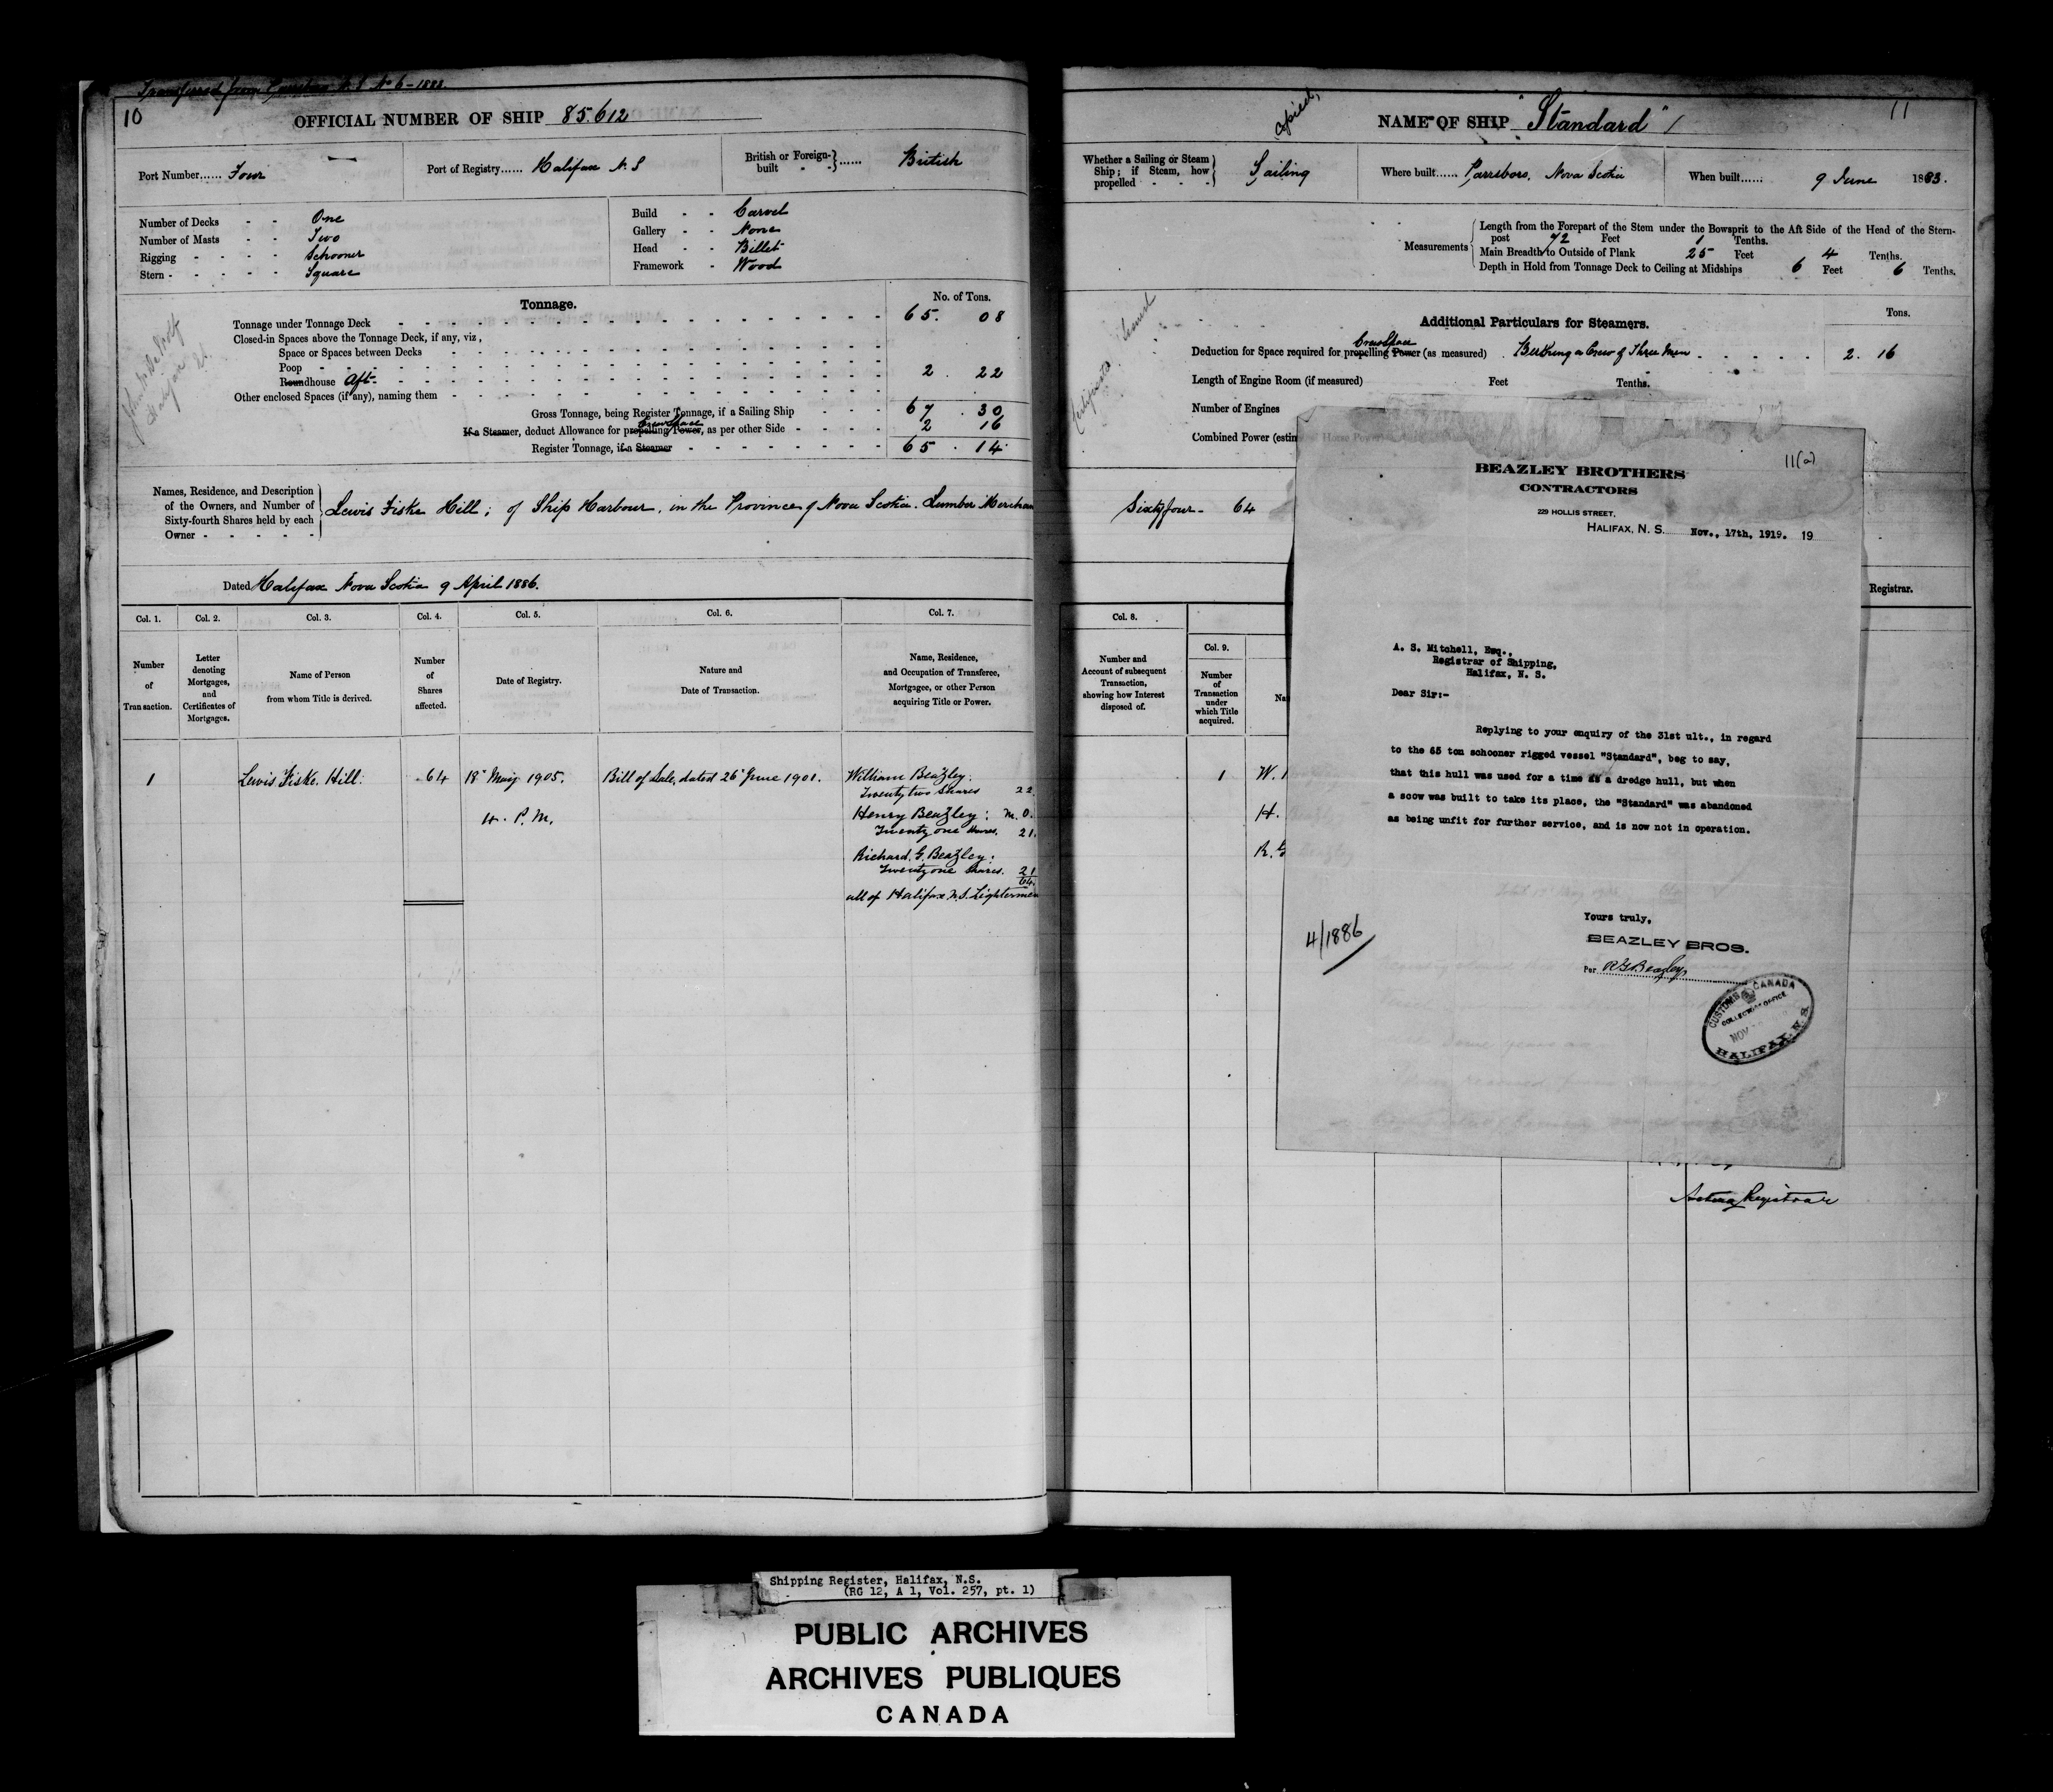 Transferred from Parrsboro N.S. No 6-1883.
10
OFFICIAL NUMBER OF SHIP 85.612
Port Number...... Four
Port of Registry...... Halifax N.S
British or Foreign-built } ...... British
Number of Decks - - One
Number of Masts - - Two
Rigging - - - - Schooner
Stern - - - - - Square
Build - - Carvel
Gallery - - None
Head - - Billet
Framework - Wood
Tonnage.
No. of Tons.
Tonnage under Tonnage Deck 65. 08
Closed-in Spaces above the Tonnage Deck, if any, viz,
Space or Spaces between Decks
Poop
Roundhouse Aft 2. 22
Other enclosed Spaces (if any), naming them
Gross Tonnage, being Register Tonnage, if a Sailing Ship 67. 30
Crew Space
If a Steamer, deduct Allowance for propelling Power, as per other Side 2 16
Register Tonnage, if a Steamer 65. 14
Names, Residence, and Description
of the Owners, and Number of
Sixty-fourth Shares held by each
Owner
Lewis Fiske Hill; of Ship Harbour, in the Province of Nova Scotia. Lumber Merchan
Dated Halifax Nova Scotia 9 April 1886.
Col. 1. Col. 2. Col. 3. Col. 4. Col. 5. Col. 6. Col. 7.
Number
of
Transaction.
Letter
denoting
Mortgages,
and
Certificates of
Mortgages.
Name of Person
from whom Title is derived.
Number
of
Shares
affected.
Date of Registry.
Nature and
Date of Transaction.
Name, Residence,
and Occupation of Transferee,
Mortgagee, or other Person
acquiring Title or Power.
1 Lewis Fiske Hill. 64 18 May 1905. Bill of Sale, dated 26 June 1901. William Beazley.
Twenty two Shares 22.
4. P.M. Henry Beazley: M.O.
Twenty one Shares. 21.
Richard. G. Beazley:
Twenty one Shares. 21
64.
all of Halifax N.S. Lightermen
11
Copied,
NAME OF SHIP "Standard"
Whether a Sailing or Steam
Ship; if Steam, how
propelled - - -
Sailing
Where built...... Parrsboro, Nova Scotia
When built...... 9 June 1883.
Measurements
Length from the Forepart of the Stem under the Bowsprit to the Aft Side of the Head of the Stern-
post 72 Feet 1 Tenths.
Main Breadth to Outside of Plank 25 Feet 4 Tenths.
Depth in Hold from Tonnage Deck to Ceiling at Midships 6 Feet 6 Tenths.
Additional Particulars for Steamers.
Tons.
Crew Space
Deduction for Space required for propelling Power (as measured) . Berthing a Crew of Three Men 2. 16
Length of Engine Room (if measured) Feet Tenths.
Number of Engines
Combined Power (estim
Sixty four - 64
Registrar.
Col. 8.
Number and
Account of subsequent
Transaction,
showing how Interest
disposed of.
Col. 9.
Number
of
Transaction
under
which Title
acquired.
Na
1 W.
H.
R. G
Acting Registrar
11(a)
BEAZLEY BROTHERS
CONTRACTORS
229 HOLLIS STREET,
HALIFAX, N. S. Nov., 17th, 1919. 19
A. S. Mitchell, Esq.,
Registrar of Shipping,
Halifax, N. S.
Dear Sir:-
Replying to your enquiry of the 31st ult., in regard
to the 65 ton schooner rigged vessel "Standard", beg to say,
that this hull was used for a time as a dredge hull, but when
a scow was built to take its place, the "Standard" was abandoned
as being unfit for further service, and is now not in operation.
Yours truly,
BEAZLEY BROS.
Per R G Beazley
4/1886
CUSTOMS CANADA
COLLECTORS OFFICE
NOV
HALIFAX, N. S.
Shipping Register, Halifax, N.S.
(RG 12, A 1, Vol. 257, pt. 1)
PUBLIC ARCHIVES
ARCHIVES PUBLIQUES
CANADA